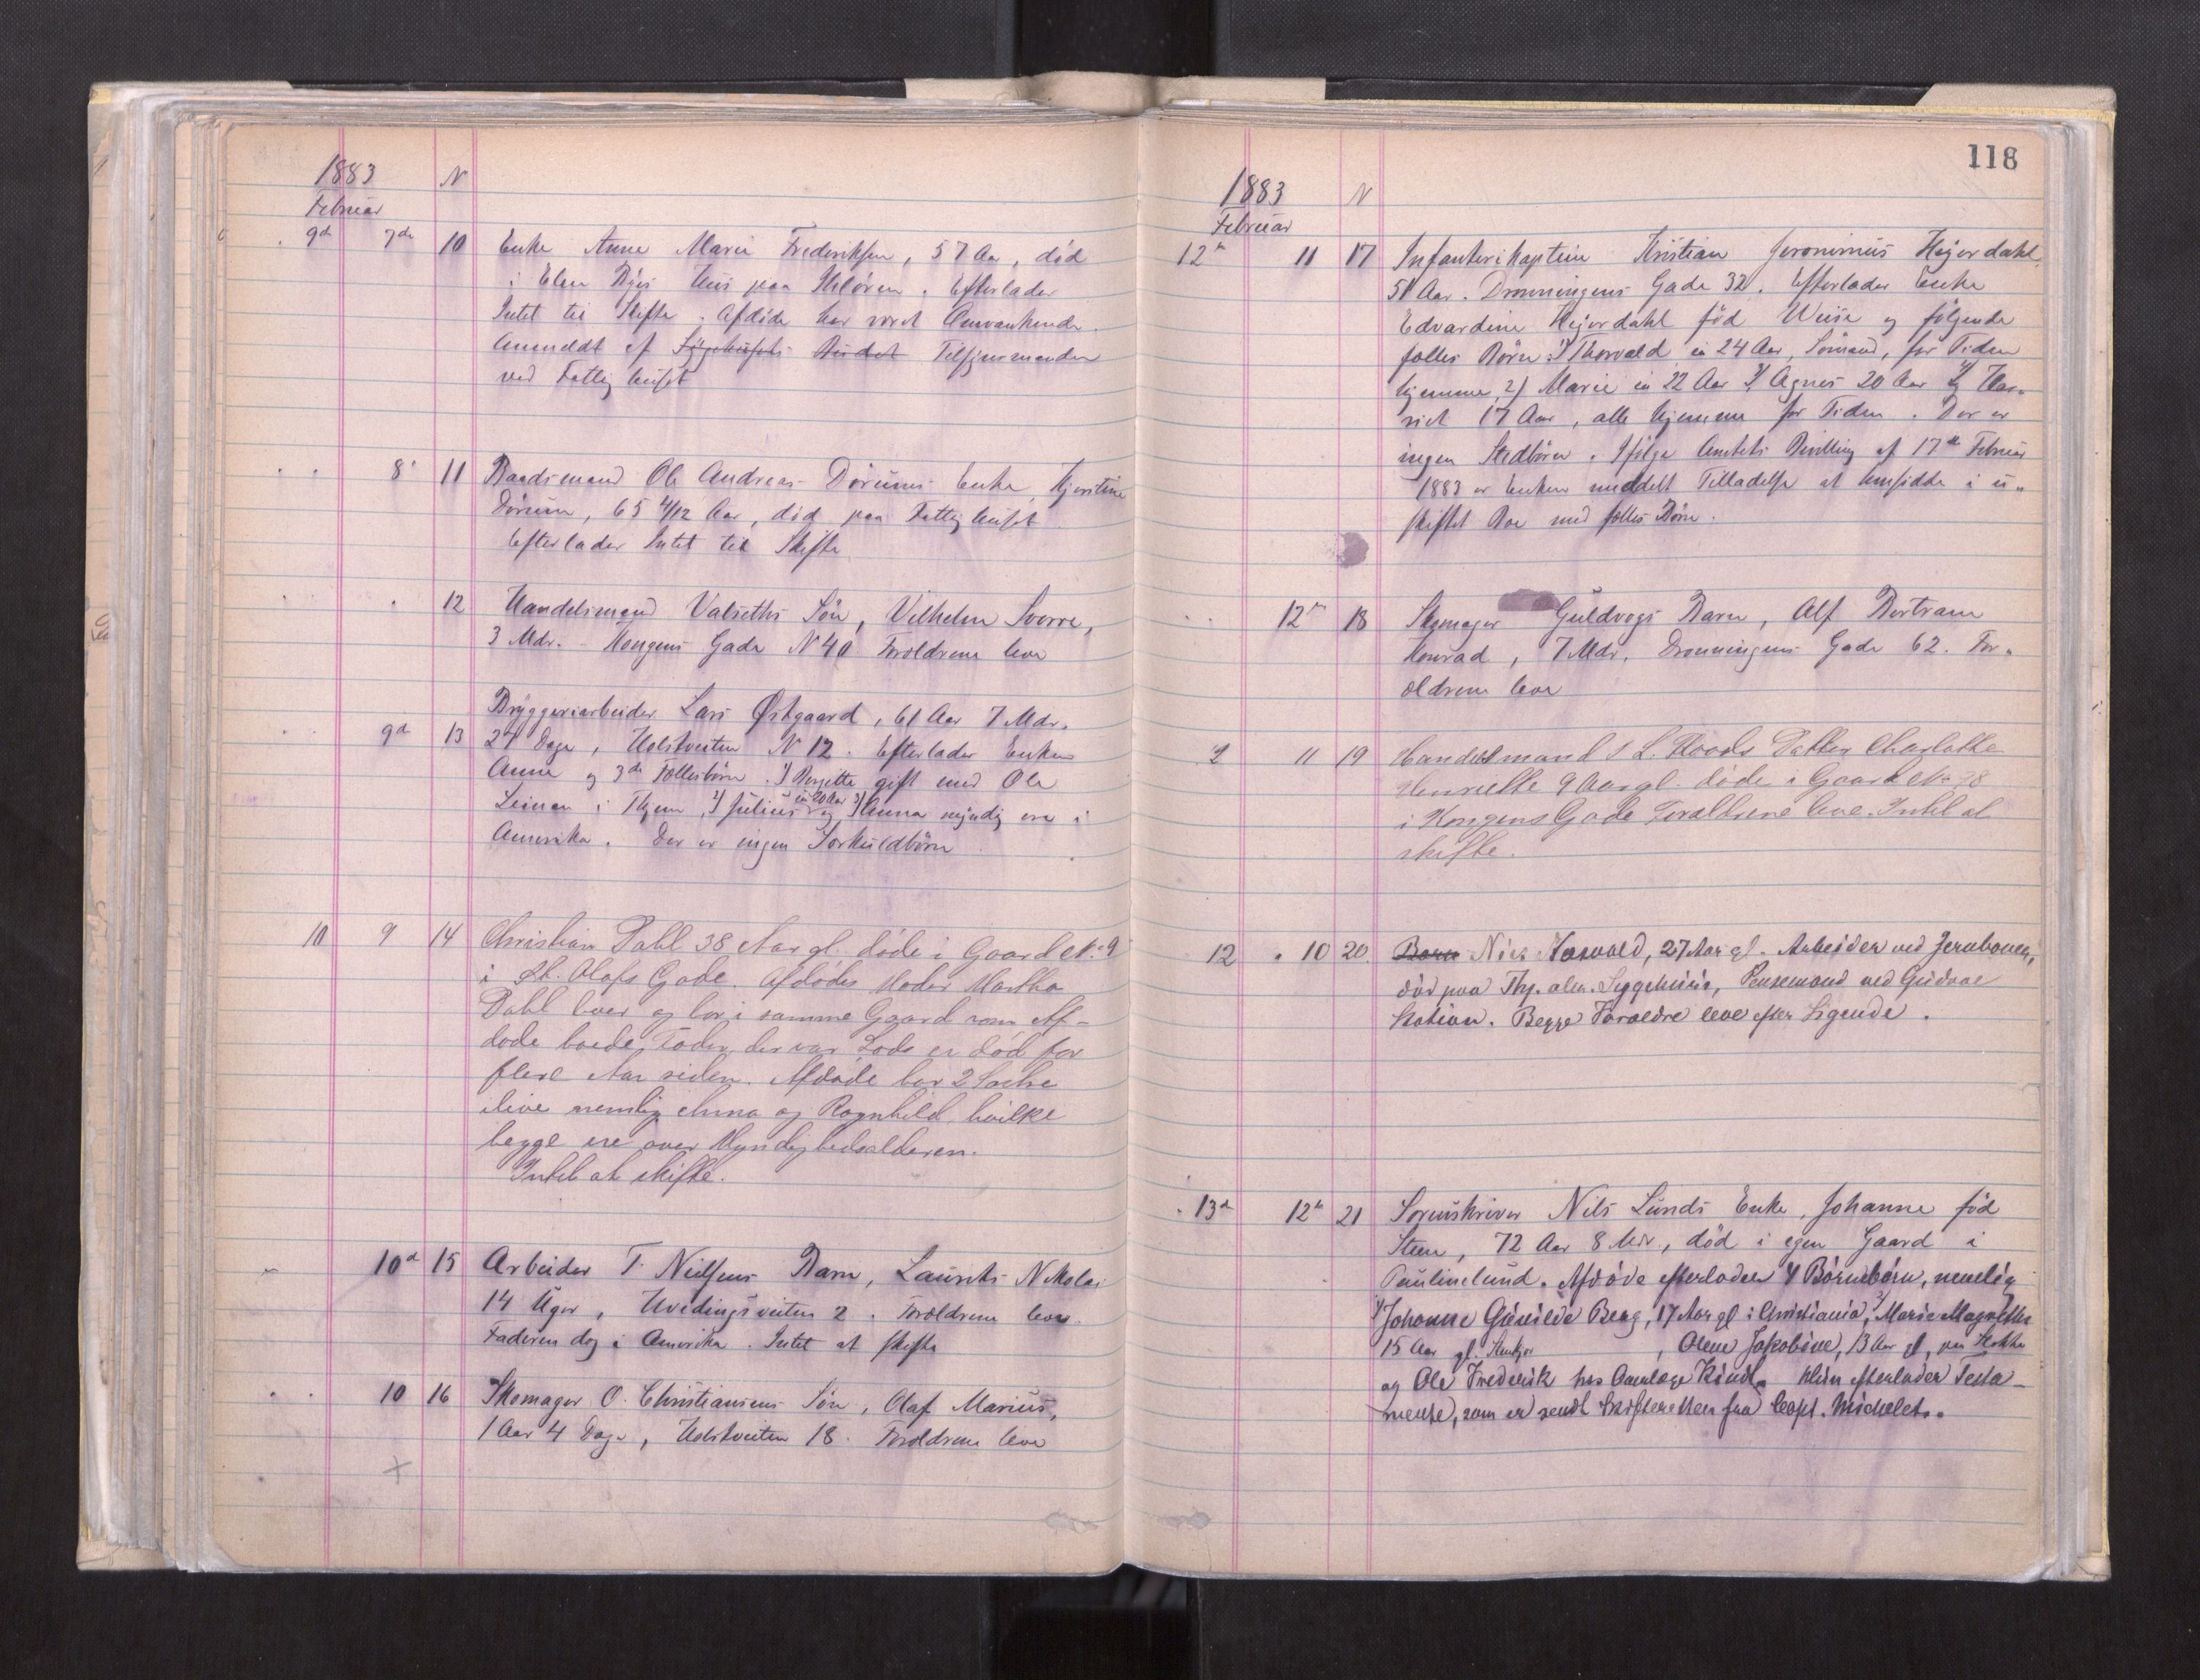 1883 N
Februar
9de 7de 10 Enke Anne Marie Frederiksen, 57 Aar, død
i Elen Byes Hus paa Ihløren. Efterlader
Intet til Skifte. Afdøde har været Omvankende.
Anmeldt af Sygehusets Budet Tilsynsmanden
ved Fattighuset
8de 11 Baadsmand Ole Andreas Dørums Enke, Kjerstine
Dørum, 65 4/12 Aar, død paa Fattighuset
Efterlader Intet til Skifte
12 Handelsmand Valseths Søn, Vilhelm Sverre,
3 Mdr. - Kongens Gade N 40 Forældrene leve
Bryggeriarbeider Lars Østgaard, 61 Aar 7 Mdr.
9de 13 24 Dage, Holstveiten N 12. Efterlader Enken
Anne og 3de Fællesbørn. 1) Bergitte gift med Ole
Leinan i Thjem, 2) Julius en 20 Aar og 3) Anna myndig ere i
Amerika. Der er ingen Særkuldbørn
10 9 14 Christian Dahl 38 Aar gl. døde i Gaard No 9
i St. Olafs Gade. Afdødes Moder Martha
Dahl lever og bor i samme Gaard som Af-
døde boede, Fader, der var Lods er død for
flere Aar siden. Afdøde har 2 Søstre
ilive nemlig Anna og Ragnhild, hvilke
begge ere over Myndighedsalderen.
Intet at skifte.
10de 15 Arbeider T. Nielsens Barn, Laurits Nikolai
14 Uger, Hvidingsveiten 2. Forældrene leve
Faderen dog i Amerika. Intet at skifte
10 16 Skomager O. Christiansens Søn, Olaf Marius,
1 Aar 4 Dage, Holstveiten 18. Forældrene leve
118
1883 N
Februar
12te 11 17 Infanterikaptein Kristian Jeronimus Hejerdahl
51 Aar. Dronningens Gade 32. Efterlader Enke
Edvardine Hejerdahl født Weise og følgende
fælles Børn: 1) Thorvald en 24 Aar, Sømand, for Tiden
hjemme, 2) Marie en 22 Aar 3) Agnes 20 Aar 4) Har-
riet 17 Aar, alle hjemme for Tiden. Der er
ingen Stedbørn. Ifølge Amtets Bevilling af 17de Februar
1883 er Enken meddelt Tilladelse at hensidde i u-
skiftet Bo med fælles Børn.
12te 18 Skomager Guldvogs Barn, Alf Bertram
Konrad, 7 Mdr. Dronningens Gade 62. For-
ældrene leve
11 19 Handelsmand S L. Datter Charlotte
Henriette 9 Aar gl. døde i Gaard No 98
i Kongens Gade Forældrene leve. Intet at
skifte.
12 10 20 Barn Nils 27 Aar gl. Arbeider ved Jernbanen,
død paa Thj. alm. Sygehuus, Pensemand ved Gudaae
Station. Begge Forældre leve efter Sigende.
13de 12te 21 Sorenskriver Nils Lunds Enke, Johanne født
Steen, 72 Aar 8 Mdr., død i egen Gaard i
Paulinelund. Afdøde efterlader 4 Børnebørn, nemlig
1) Johanne Gunilde Berg, 17 Aar gl i Christiania, 2) Marie Magrethe
15 Aar gl. Stenkjær, Olene Jakobine, 13 Aar gl, paa
og Ole Frederik hos Overlæge Kindt. Hun efterlader Testa-
mente, som er sendt Skifteretten fra Capt. Michelets.